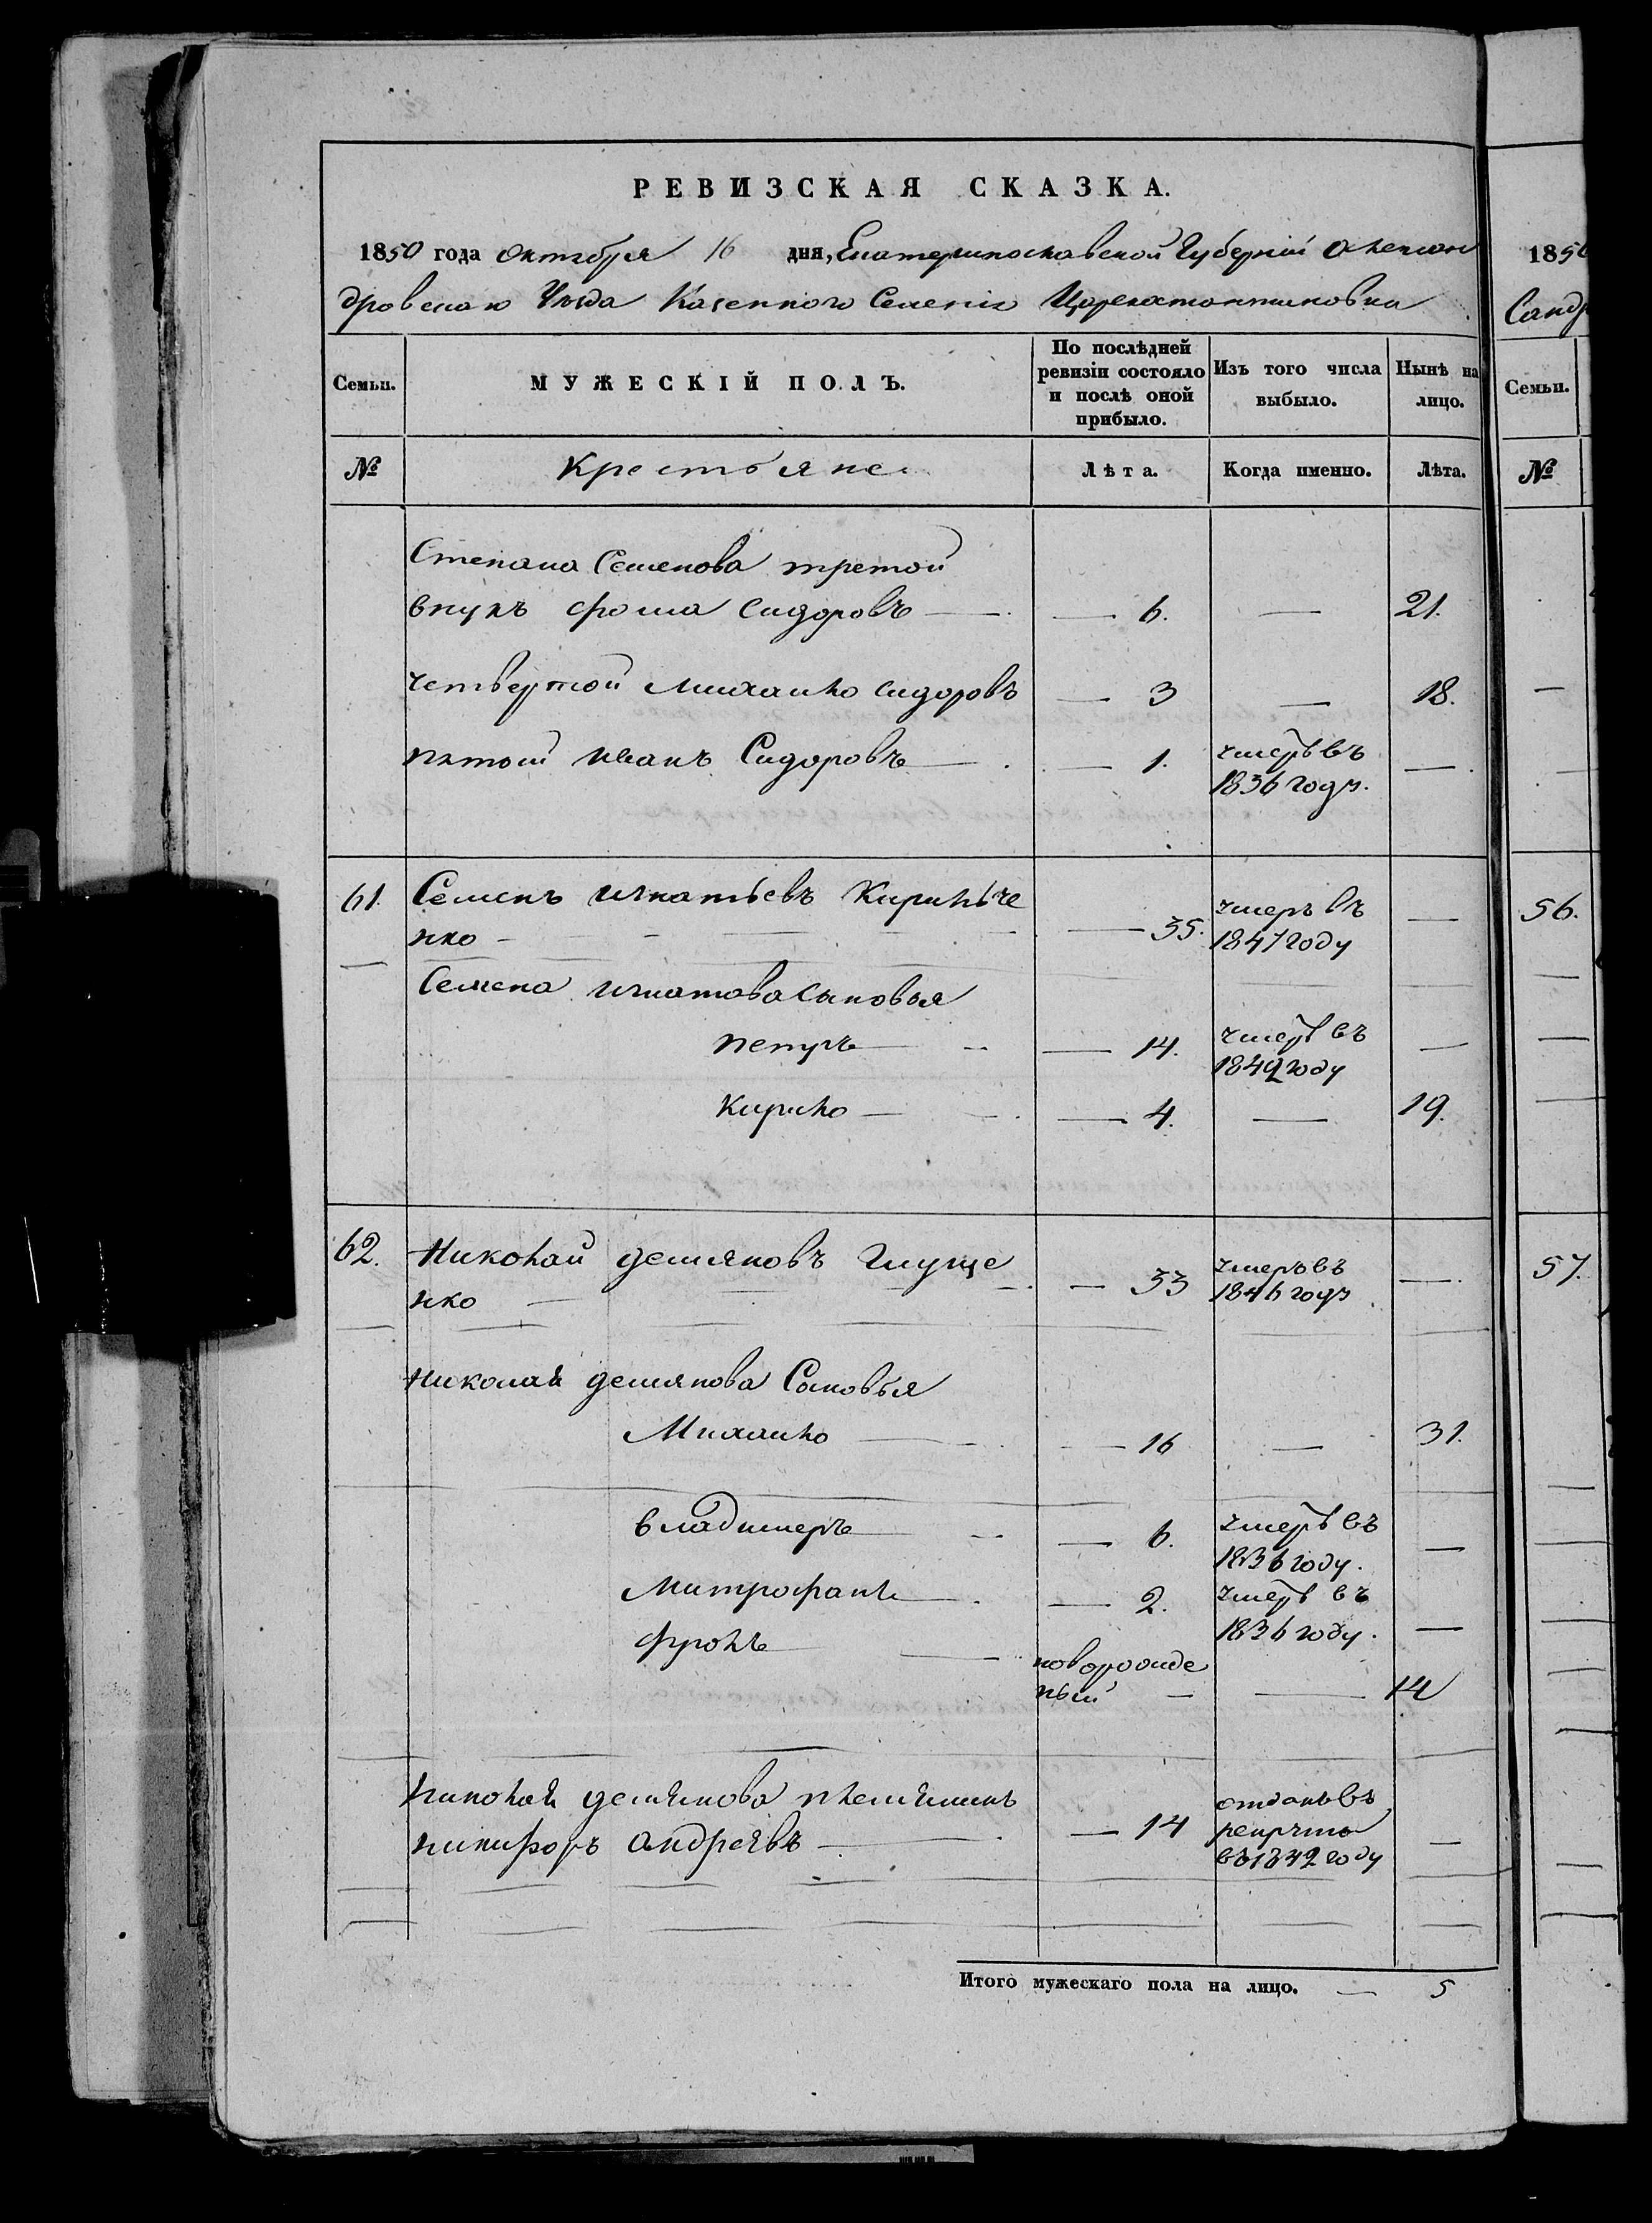 РЕВИЗСКАЯ СКАЗКА.
1850 года Октября 16 дня, Екатеринославской Губерніи Алексан
дровскаго Уезда Казенного Селенія Цареконстантиновки
Семьи. МУЖЕСКІЙ ПОЛЪ. По послѣдней ревизіи состояло и послѣ оной прибыло. Изъ того числа выбыло. Нынѣ на лицо.
№ Крестьяне Лѣта. Когда именно. Лѣта.
Степана Семенова третой
внукъ Фома Сидоровъ — 6. — 21.
четвертой Михайло Сидоровъ — 3 — 18.
пятой Иванъ Сидоровъ — 1. умеръ въ
1836 году. —
61. Семенъ Игнатьевъ Кириличе
нко — 35. умеръ въ
1847 году —
Семена Игнатова Сыновья
Петръ — 14. умеръ въ
1849 году —
Кирило — 4. — 19.
62. Николай Демяновъ Глуще
нко — 33 умеръ въ
1846 году —
Николая Демянова Сыновья
Михайло — 16 — 31.
Владимеръ — 6. умеръ въ
1836 году. —
Митрофанъ — 2. умеръ въ
1836 году. —
Фролъ — новорожде
ный — — 14
Николая Демянова племянникъ
Никифоръ Андреевъ — 14 отданъ въ
рекруты
въ 1842 году —
Итого мужескаго пола на лицо. — 5
1850
Санд
Семьи.
№
56.
57.